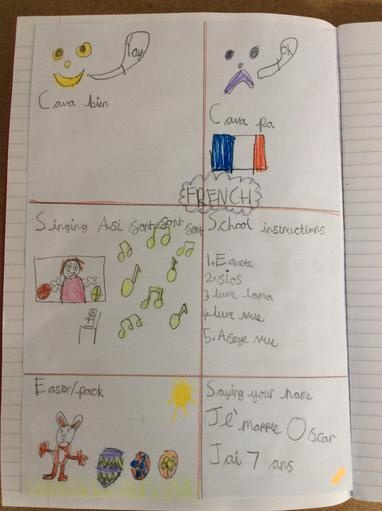 Yay
Oh
Cava bien
Cava pa
FRENCH
Singing Ausi font font font
School instructions
1. Ecoute
2. silos
3 luve lama
4 luve vue
5. Aseye vue
Easter/pack
Saying your name
Je' mapple Oscar
Jai 7 ans